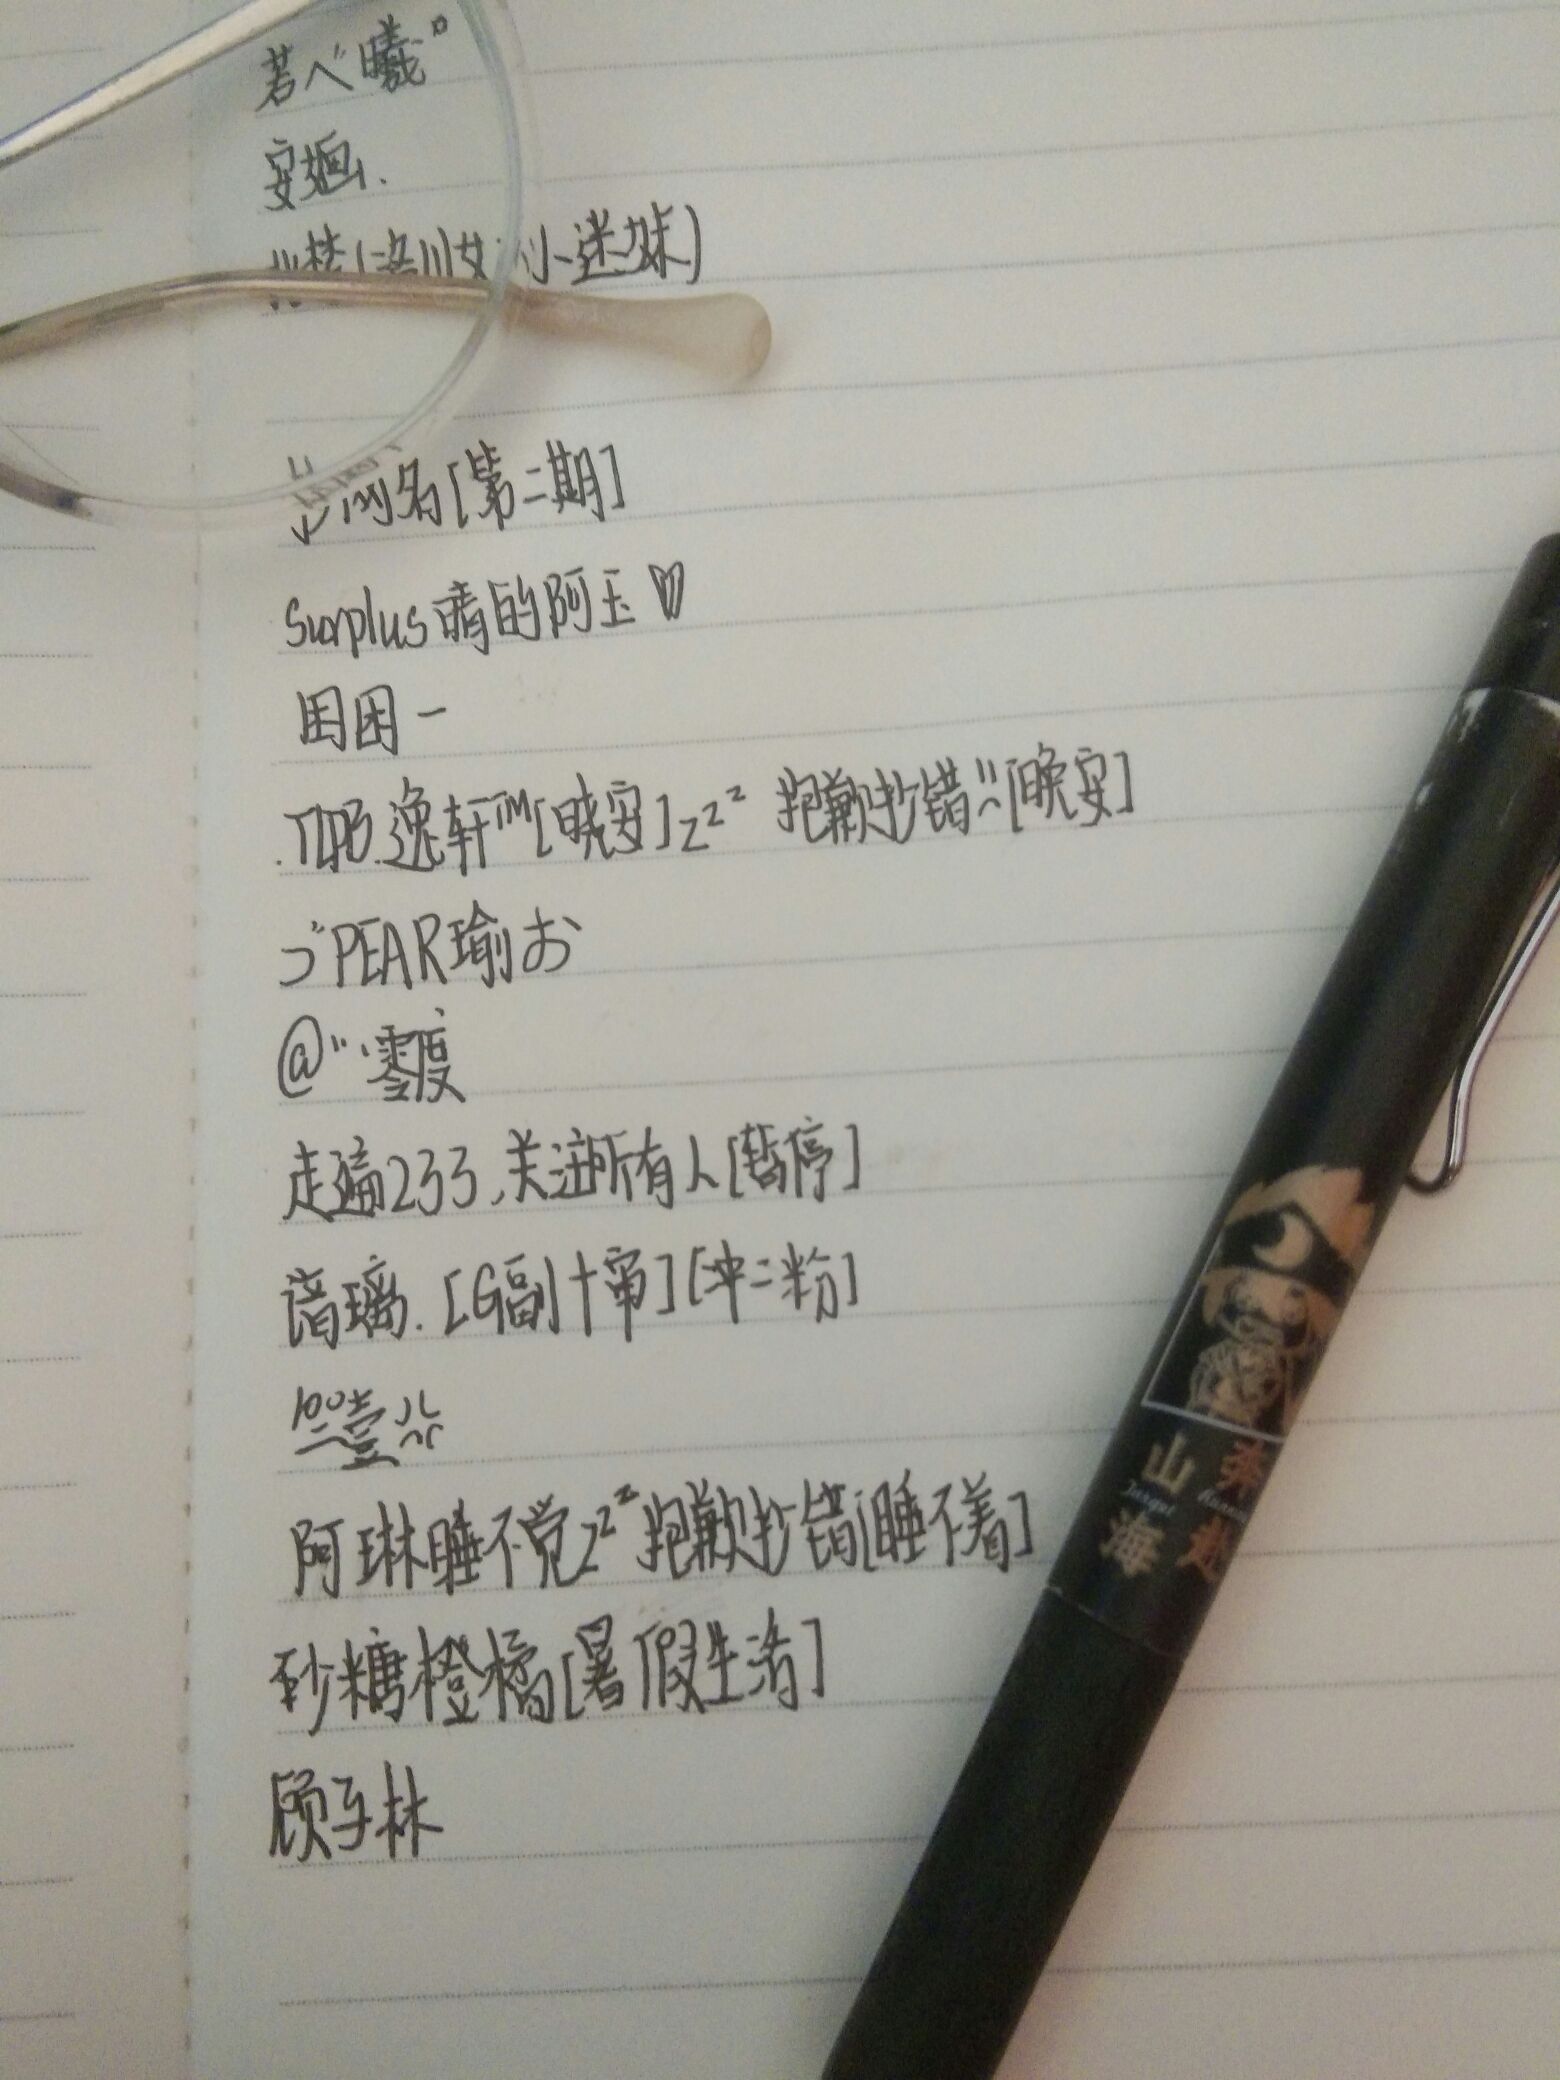 若ヘ゛曦°
安
(洛川女 小迷妹)
网名[第二期]
Surplus晴的阿玉♡
困困一
逸轩™[晓安]zzz 抱歉抄错[晚安]
づPEAR瑜お
@零度
走遍233,关注所有人[暂停]
璃.[G副十审][冲二粉]
壹
阿琳睡不觉zzz抱歉抄错[睡不着]
砂糖橙橘[暑假生活]
顾子林
山海
奔赴